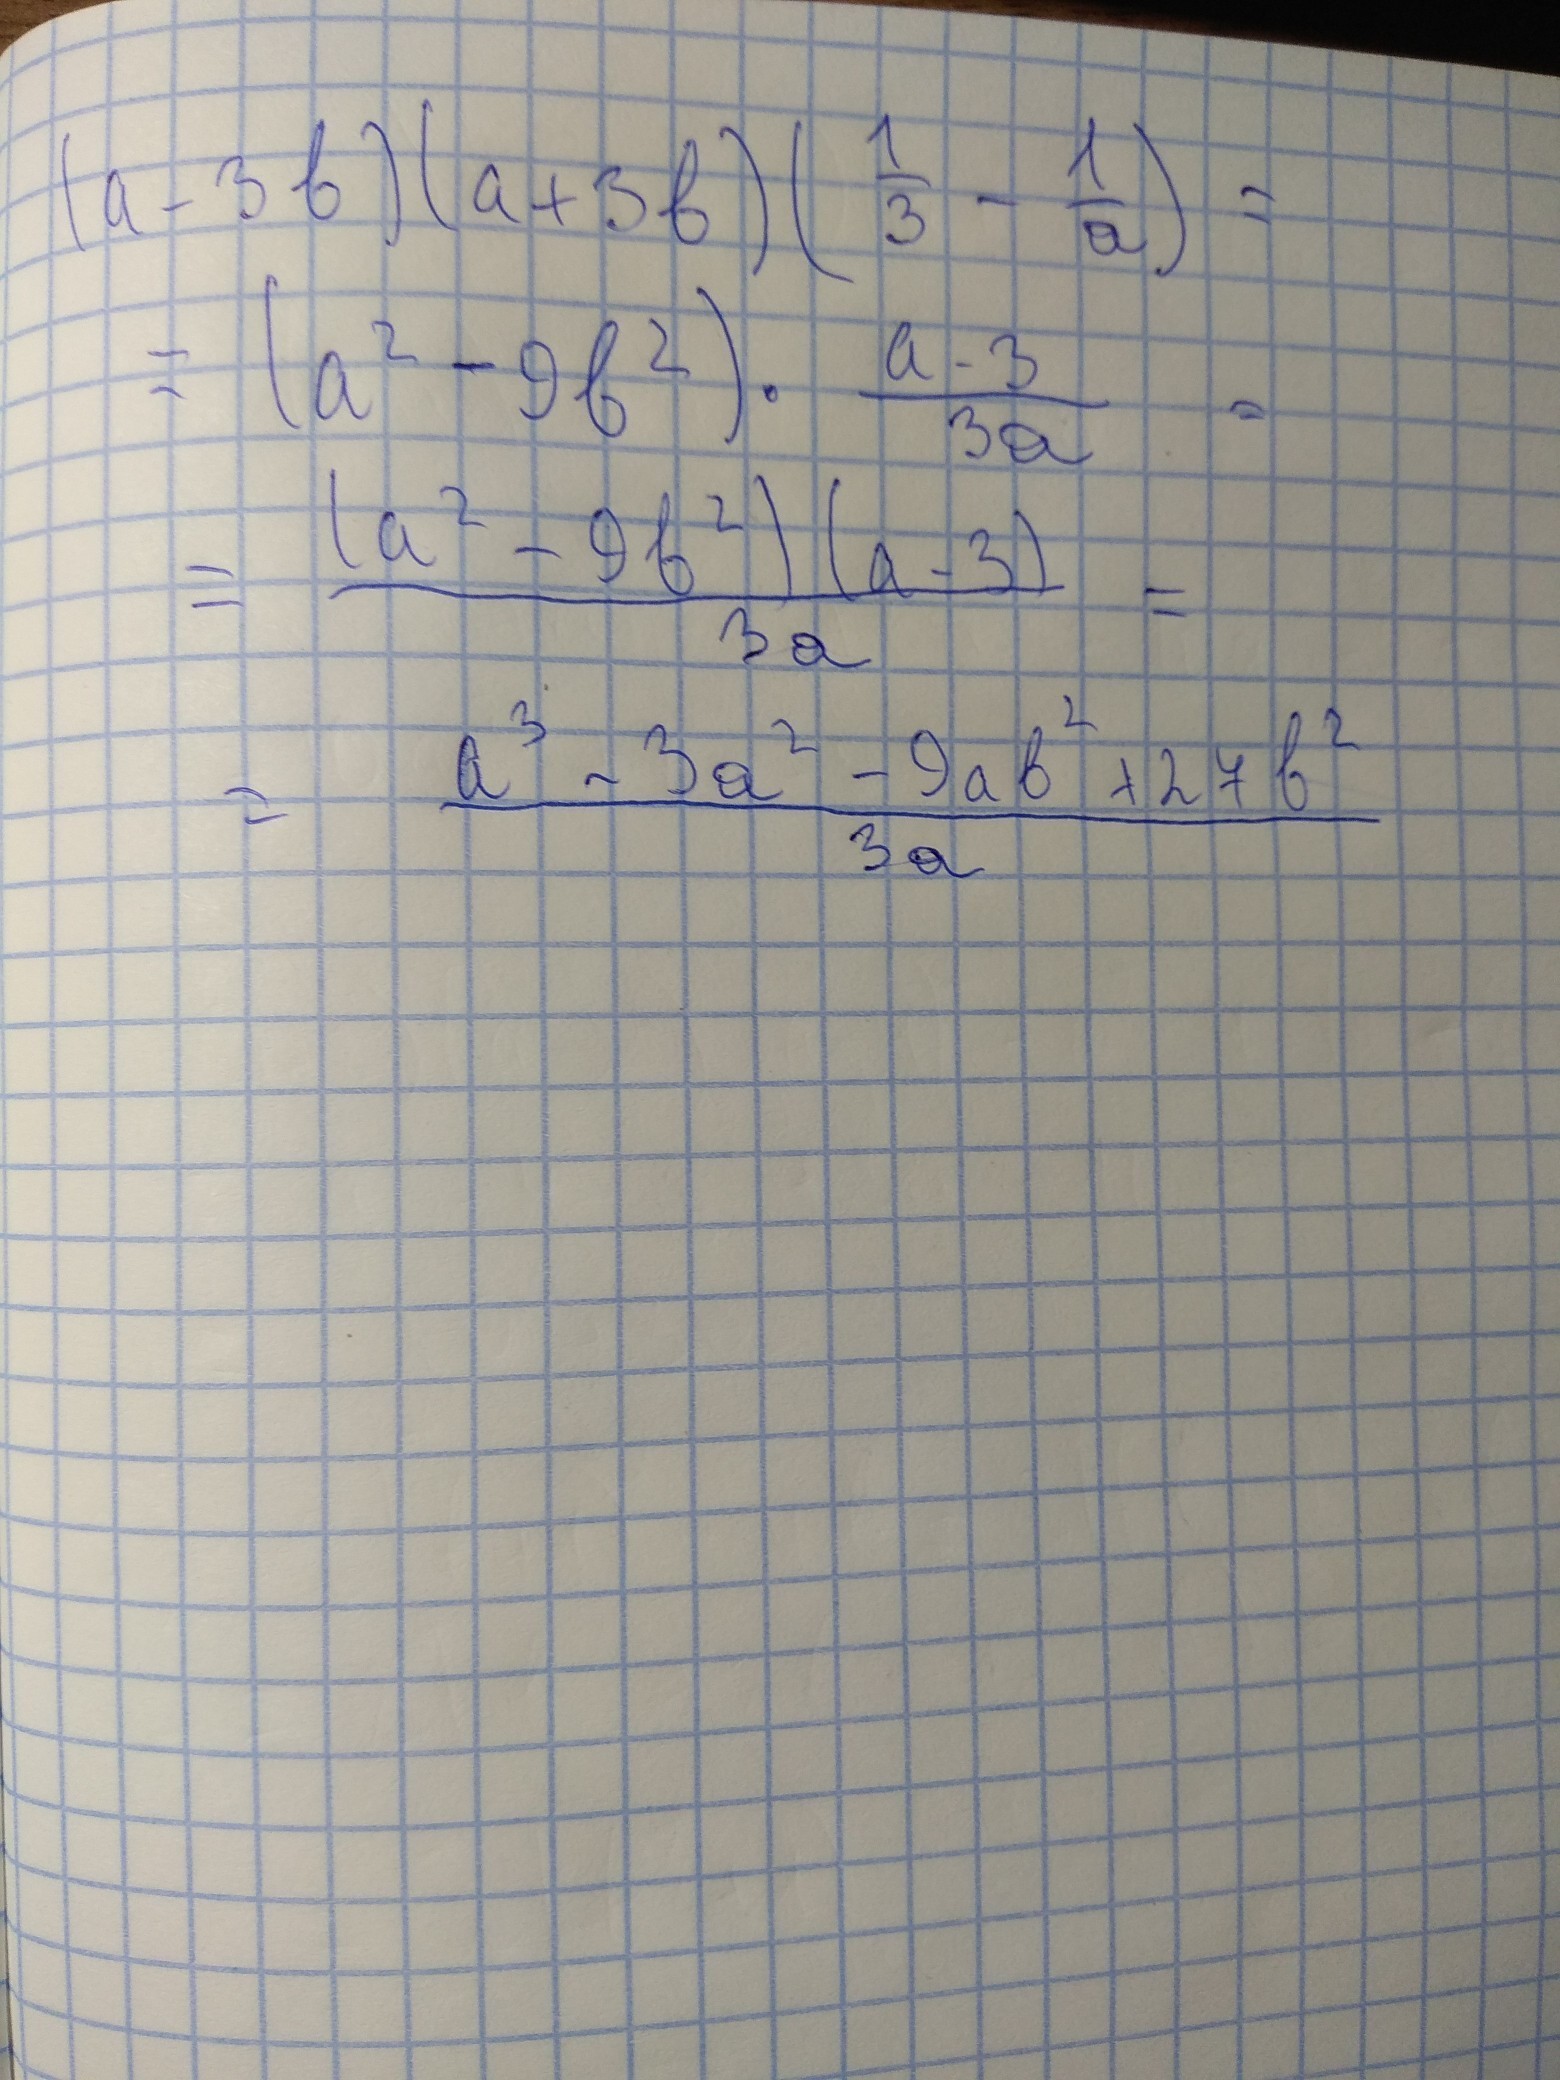 (a-3b)(a+3b)(1/3 - 1/a) =
= (a² - 9b²) · (a-3)/(3a) =
= ((a² - 9b²)(a-3))/(3a) =
= (a³ - 3a² - 9ab² + 27b²)/(3a)